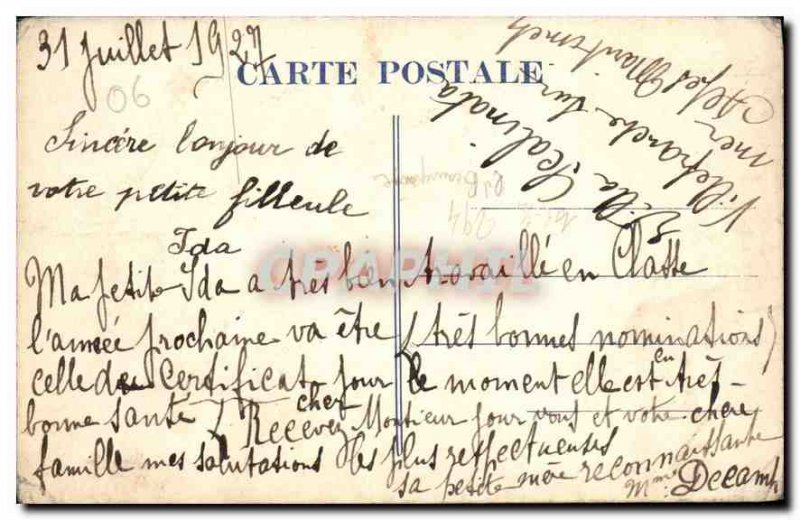 31 Juillet 1927
CARTE POSTALE
06
Sincère bonjour de
votre petite filleule
Ida
Ma petite Ida a très bien travaillé en Classe
l'année prochaine va être (très bonnes nominations)
celle de Certificat pour le moment elle est en très
bonne santé Recevez cher Monsieur pour vous et votre chère
famille mes salutations les plus respectueuses
sa petite mère reconnaissante
Mme Decamp
Villa
Villefranche sur
mer
Alpes Maritimes
294
CPAPHIL